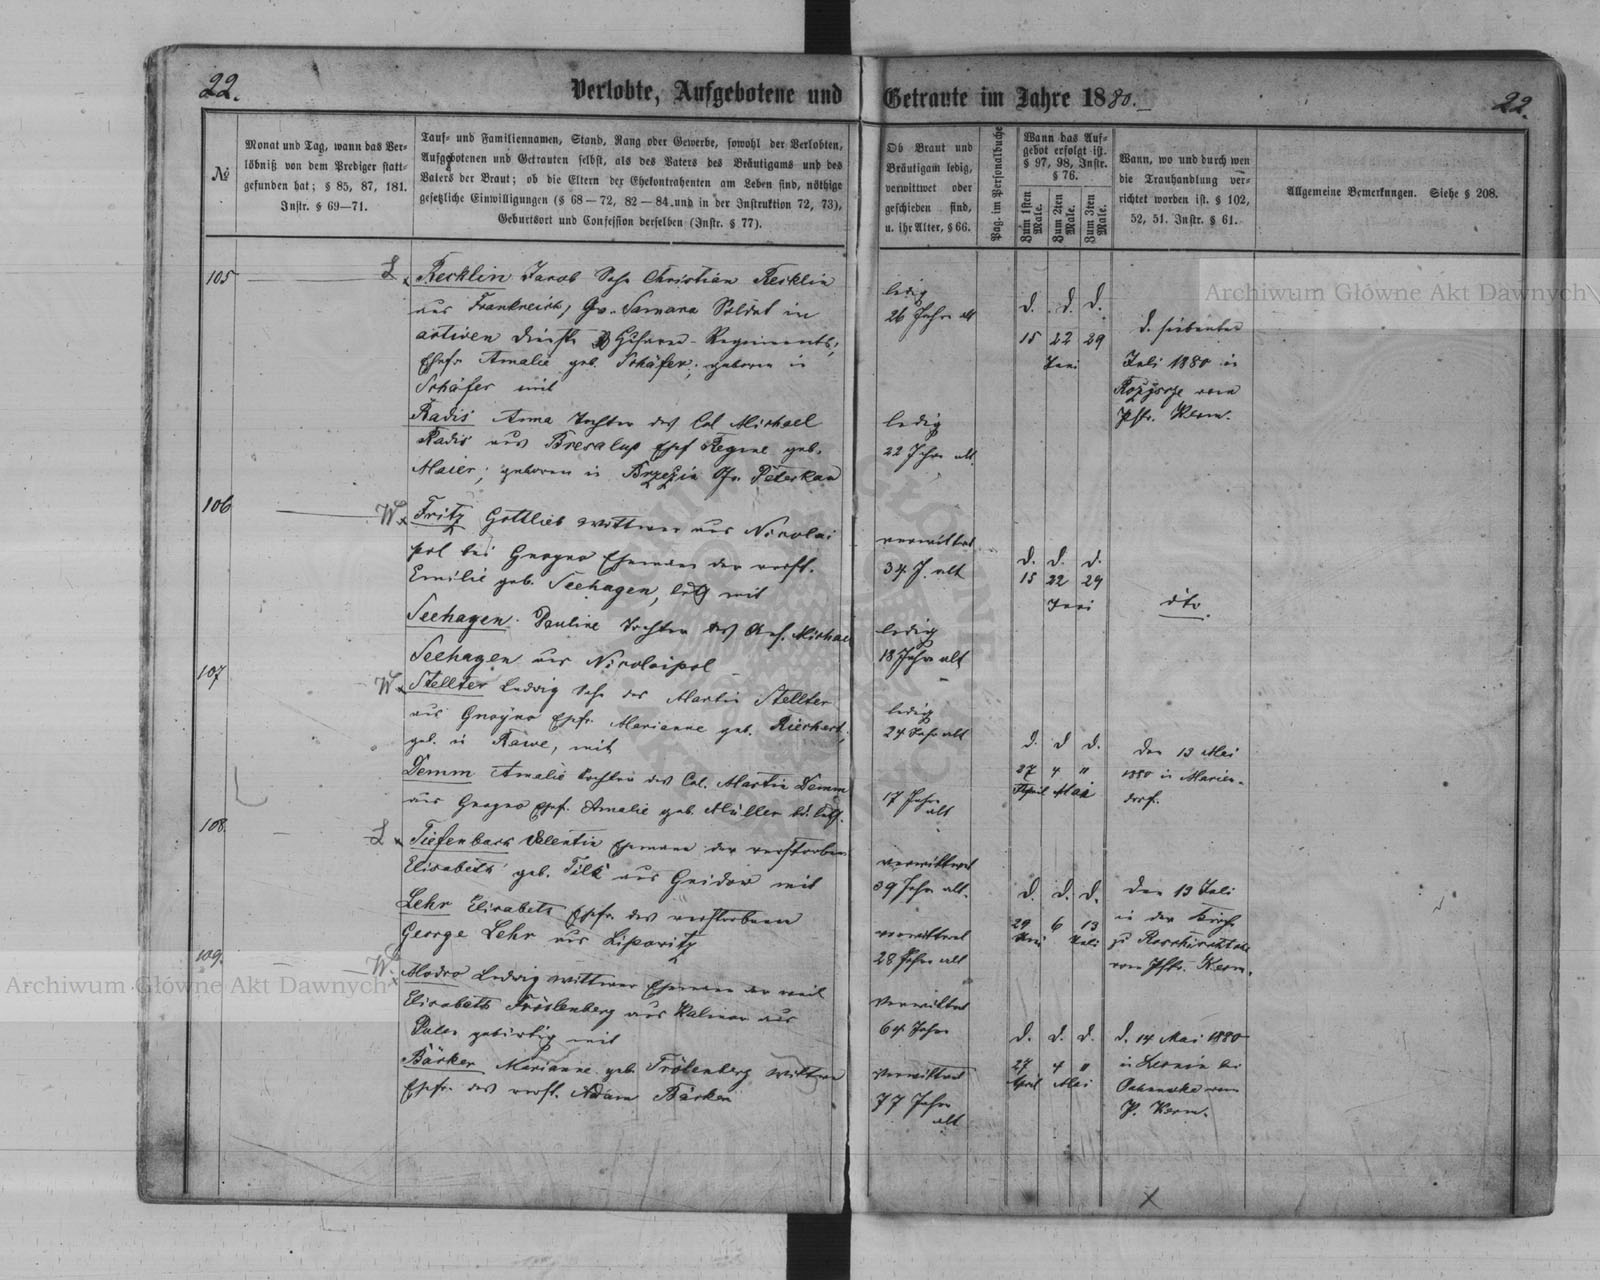 22.
Verlobte, Aufgebotene und Getraute im Jahre 1880.
22.
№
Monat und Tag, wann das Ver-
löbniß von dem Prediger statt-
gefunden hat; § 85, 87, 181.
Instr. § 69—71.
Tauf- und Familiennamen, Stand, Rang oder Gewerbe, sowohl der Verlobten,
Aufgebotenen und Getrauten selbst, als des Vaters des Bräutigams und des
Vaters der Braut; ob die Eltern der Ehekontrahenten am Leben sind, nöthige
gesetzliche Einwilligungen (§ 68—72, 82—84 und in der Instruktion 72, 73),
Geburtsort und Confession derselben (Instr. § 77).
Ob Braut und
Bräutigam ledig,
verwittwet oder
geschieden sind,
u. ihr Alter, § 66.
Pag. im Personalbuche
Wann das Auf-
gebot erfolgt ist.
§ 97, 98, Instr.
§ 76.
Zum 1sten Male.
Zum 2ten Male.
Zum 3ten Male.
Wann, wo und durch wen
die Trauhandlung ver-
richtet worden ist. § 102,
52, 51. Instr. § 61.
Allgemeine Bemerkungen. Siehe § 208.
105
L
Recklin Jacob Sohn Christian Recklin
aus Frankreich, Gv. Samara Soldat im
activen Dienst Husaren-Regiments,
Ehefr. Amalie geb. Schäfer; geboren in
Schäfer mit
Radis Anna Tochter des Col Michael
Radis aus Ehef Regine geb.
Maier; geboren in Brzezin Gv. Peterkau
ledig
26 Jahre alt
ledig
22 Jahre alt.
d. d. d.
15 22 29
Juni
d. siebenten
Juli 1880 in
Rozyszcze vom
Pstr. Kerm.
106
W
Fritz Gottlieb Wittwer aus Nicolai
pol bei Gnoyno Ehemann der verst.
Emilie geb. Seehagen, luth mit
Seehagen Pauline Tochter des Michael
Seehagen aus Nicolaipol
verwittwet
34 J. alt
ledig
18 Jahre alt
d. d. d.
15 22 29
Juni
dto.
107
W
Stellter Ludwig Sohn des Martin Stellter
aus Gnoyno Ehefr. Marianne geb. Riechert,
geb. in Rawe, mit
Demm Amalie Tochter des Col. Martin Demm
aus Gnoyno Ehef. Amalie geb. Müller
ledig
24 Jahre alt
17 Jahre
alt
d. d. d.
27 4 "
April Mai
den 13 Mai
1880 in Marien-
dorf.
108.
L
Tiefenbach Valentin Ehemann der verstorbenen
Elisabeth geb. Tilk aus mit
Lehr Elisabeth Ehefr. des verstorbenen
George Lehr aus Lipowitz
verwittwet
39 Jahre alt.
verwittwet
28 Jahre alt
d. d. d.
29 6 13
Juni Juli
den 13 Juli
in der Kirche
zu
vom Pstr. Kerm.
109.
W.
Modro Ludwig Wittwer Ehemann der weil
Elisabeth Frölenberg aus aus
Polen gebürtig mit
Bärker Marianne geb. Frölenberg Wittwe
Ehefr. des verst. Adam Bärker
Verwittwet
64 Jahre
Verwittwet
77 Jahre
alt
d. d. d.
27 4 "
April Mai
d. 14 Mai 1880
in bei
vom
P. Kerm.
Archiwum Główne Akt Dawnych
Archiwum Główne Akt Dawnych